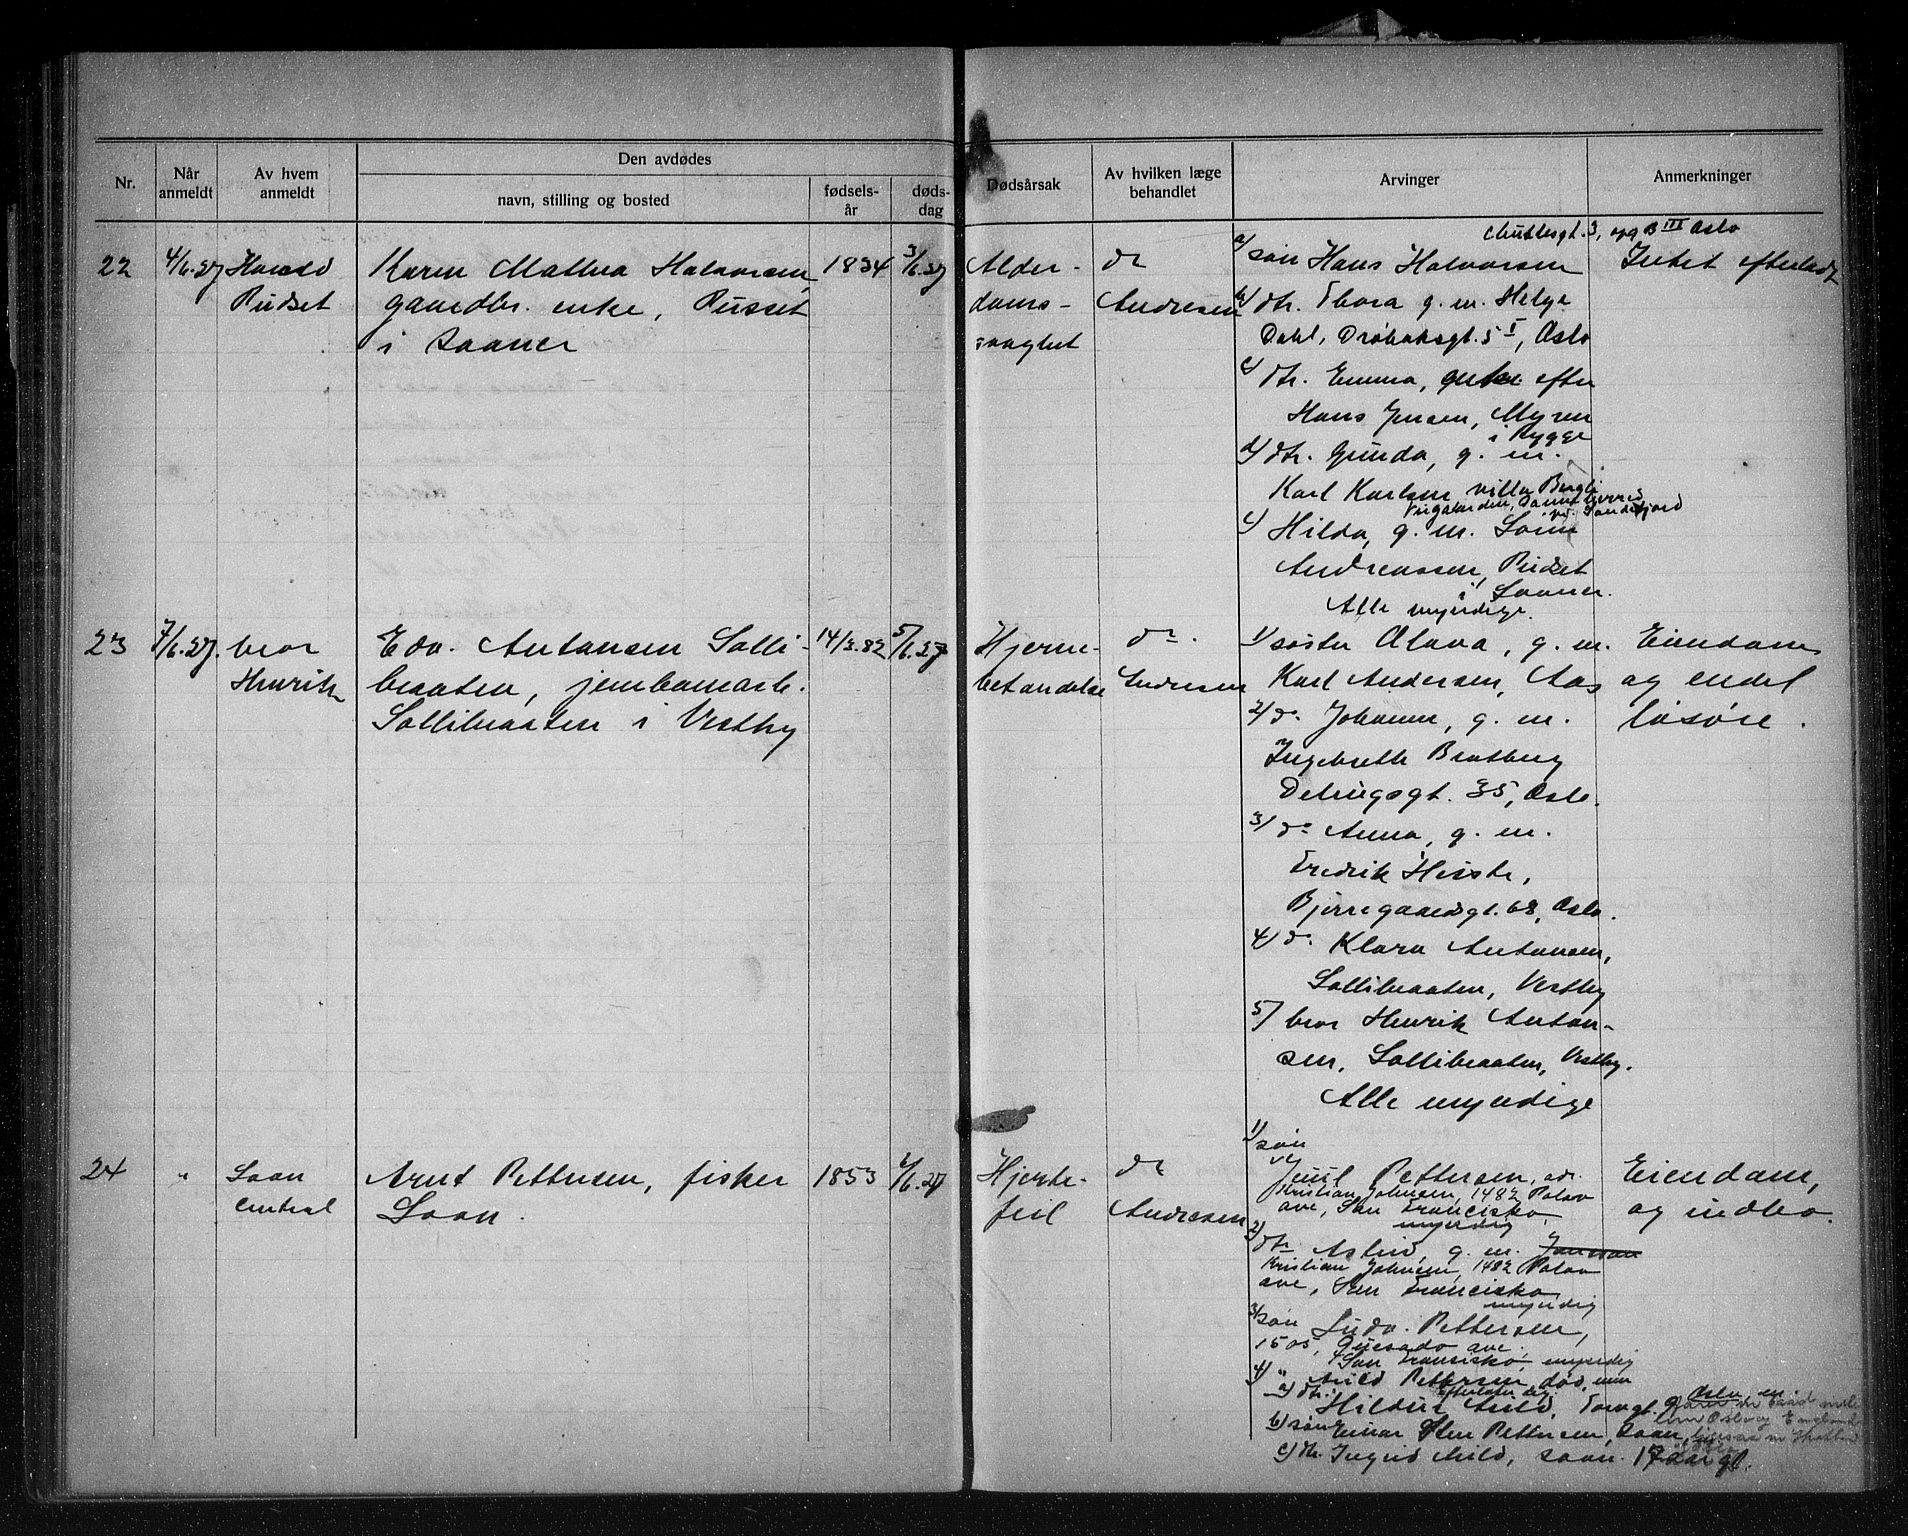 Nr.
Når anmeldt
Av hvem anmeldt
Den avdødes
navn, stilling og bosted
fødsels-år
døds-dag
Dødsårsak
Av hvilken læge behandlet
Arvinger
Anmerkninger
22
4/6.27
Harald
Rudset
Karen Mathea Halvorsen,
gaardbr. enke, Russet
i Saaner
1834
3/6.27
Alder-
doms-
svaghet
dr
Andresen
3, opg B III Oslo
a/ søn Hans Halvorsen
b/ dtr. Thora g. m. Helge
Dahl, Drøbaksgt. 5 I, Oslo
c/ dtr. Emma, enke efter
Hans Jensen, Myren
i Rygge
d/ dtr. Gunda, g. m.
Karl Karlsen villa Bergli
pr. Sandefjord
e/ Hilda, g. m.
Andreassen, Rudset
i Saaner.
Alle myndige.
Intet efterladt
23
7/6.27.
bror
Henrik
Edv. Antonsen Solli-
braaten, jernbanearb.
Sollibraaten i Vestby
14/3.82
5/6.27
Hjerne-
betændelse
dr.
Andresen
1/ søster Olava, g. m.
Karl Andersen, Aas
2/ do. Johanne, g. m.
Ingebreth Bratberg
35, Oslo.
3/ do Anna, g. m.
Fredrik
Bjerregaardsgt. 68, Oslo.
4/ do. Klara Antonsen,
Sollibraaten, Vestby
5/ bror Henrik Anton-
sen, Sollibraaten, Vestby.
Alle myndige
Eiendom
og endel
løsøre.
24
"
Soon
central
Arnt Pettersen, fisker
Soon.
1853
6/6.27
Hjerte-
feil
dr
Andresen
1/ søn
Juul Pettersen, adr.
Kristian Johnsen, 1482 Palou
ave, San Francisko,
myndig
2/
dtr Astrid, g. m.
Kristian Johnsen, 1482 Palou
ave, San Francisko
myndig
3/ søn Ludv. Pettersen,
1505, Quesada ave.
San Francisko, myndig
4/ " Arild Pettersen, død, men
efterlater sig:
a/ dtr. Hildur Arild, Torvgt. Oslo
b/ søn Einar Sten Pettersen, Soon,
c/ dtr. Ingrid Arild, Soon. 17 aar gl.
Eiendom,
og indbo.